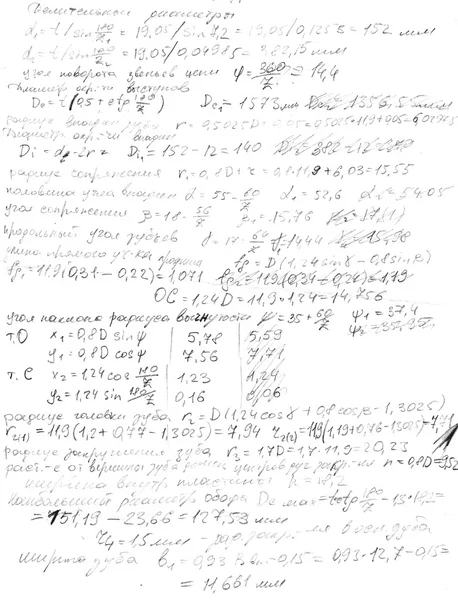 Делительный диаметры
d₁ = t / sin 180/z₁ = 19.05 / sin 7,2 = 19,05/0,1253 = 152 мм
d₂ = t / sin 180/z₂ = 19.05/0,04985 = 382,15 мм
угол поворота звеньев цепи φ = 360/z = 14,4
Диаметр окр-ти выступов
Dₑ = t(0,5 + ctg 180/z) Dₑ₁ = 157,3 мм
радиус впадин зуба r = 0,5025D + 0,05 = 0,5025·11,9+0,05 = 6,02975
Диаметр окр-ти впадин
Di = d₂ - 2r = Di₁ = 152 - 12 = 140
радиус сопряжения r₁ = 0,8D + r = 0,8·11,9 + 6,03 = 15,55
половина угла впадин α = 55 - 60/z α₁ = 52,6 α₂ = 54,05
угол сопряжения β = 18 - 56/z β₁ = 15,76
продольный угол зубьев γ = 17 - 64/z γ₁ = 14,44
длина прямого уч-ка профиля fg = D(1,24 sin γ - 0,8 sin β)
fg₁ = 11,9(0,31 - 0,22) = 1,071
OC = 1,24D = 11,9·1,24 = 14,756
угол наклона радиуса выпуклости ψ = 35 + 60/z ψ₁ = 37,4
т.О x₁ = 0,8D sin ψ 5,78 5,59
y₁ = 0,8D cos ψ 7,56 7,71
т.С x₂ = 1,24 cos 180/z 1,23 1,24
y₂ = 1,24 sin 180/z 0,16
радиус головки зуба r₂ = D(1,24 cos γ + 0,8 cos β - 1,3025)
r₂₍₁₎ = 11,9(1,2 + 0,77 - 1,3025) = 7,94
радиус закругления зуба r₃ = 1,7D = 1,7·11,9 = 20,23
раст-е от вершины зуба до линии центров дуг закр-ия h = 0,8D = 9,52
ширина внутр. пластины h = 18,2
Наибольший диаметр обода Dc max = t ctg 180/z - 1,3·18,2 =
= 151,19 - 23,66 = 127,53 мм
r₄ = 1,5 мм - рад. закр-ия в осн. зуба
ширина зуба b₁ = 0,93 Bвн - 0,15 = 0,93·12,7 - 0,15 =
= 11,661 мм